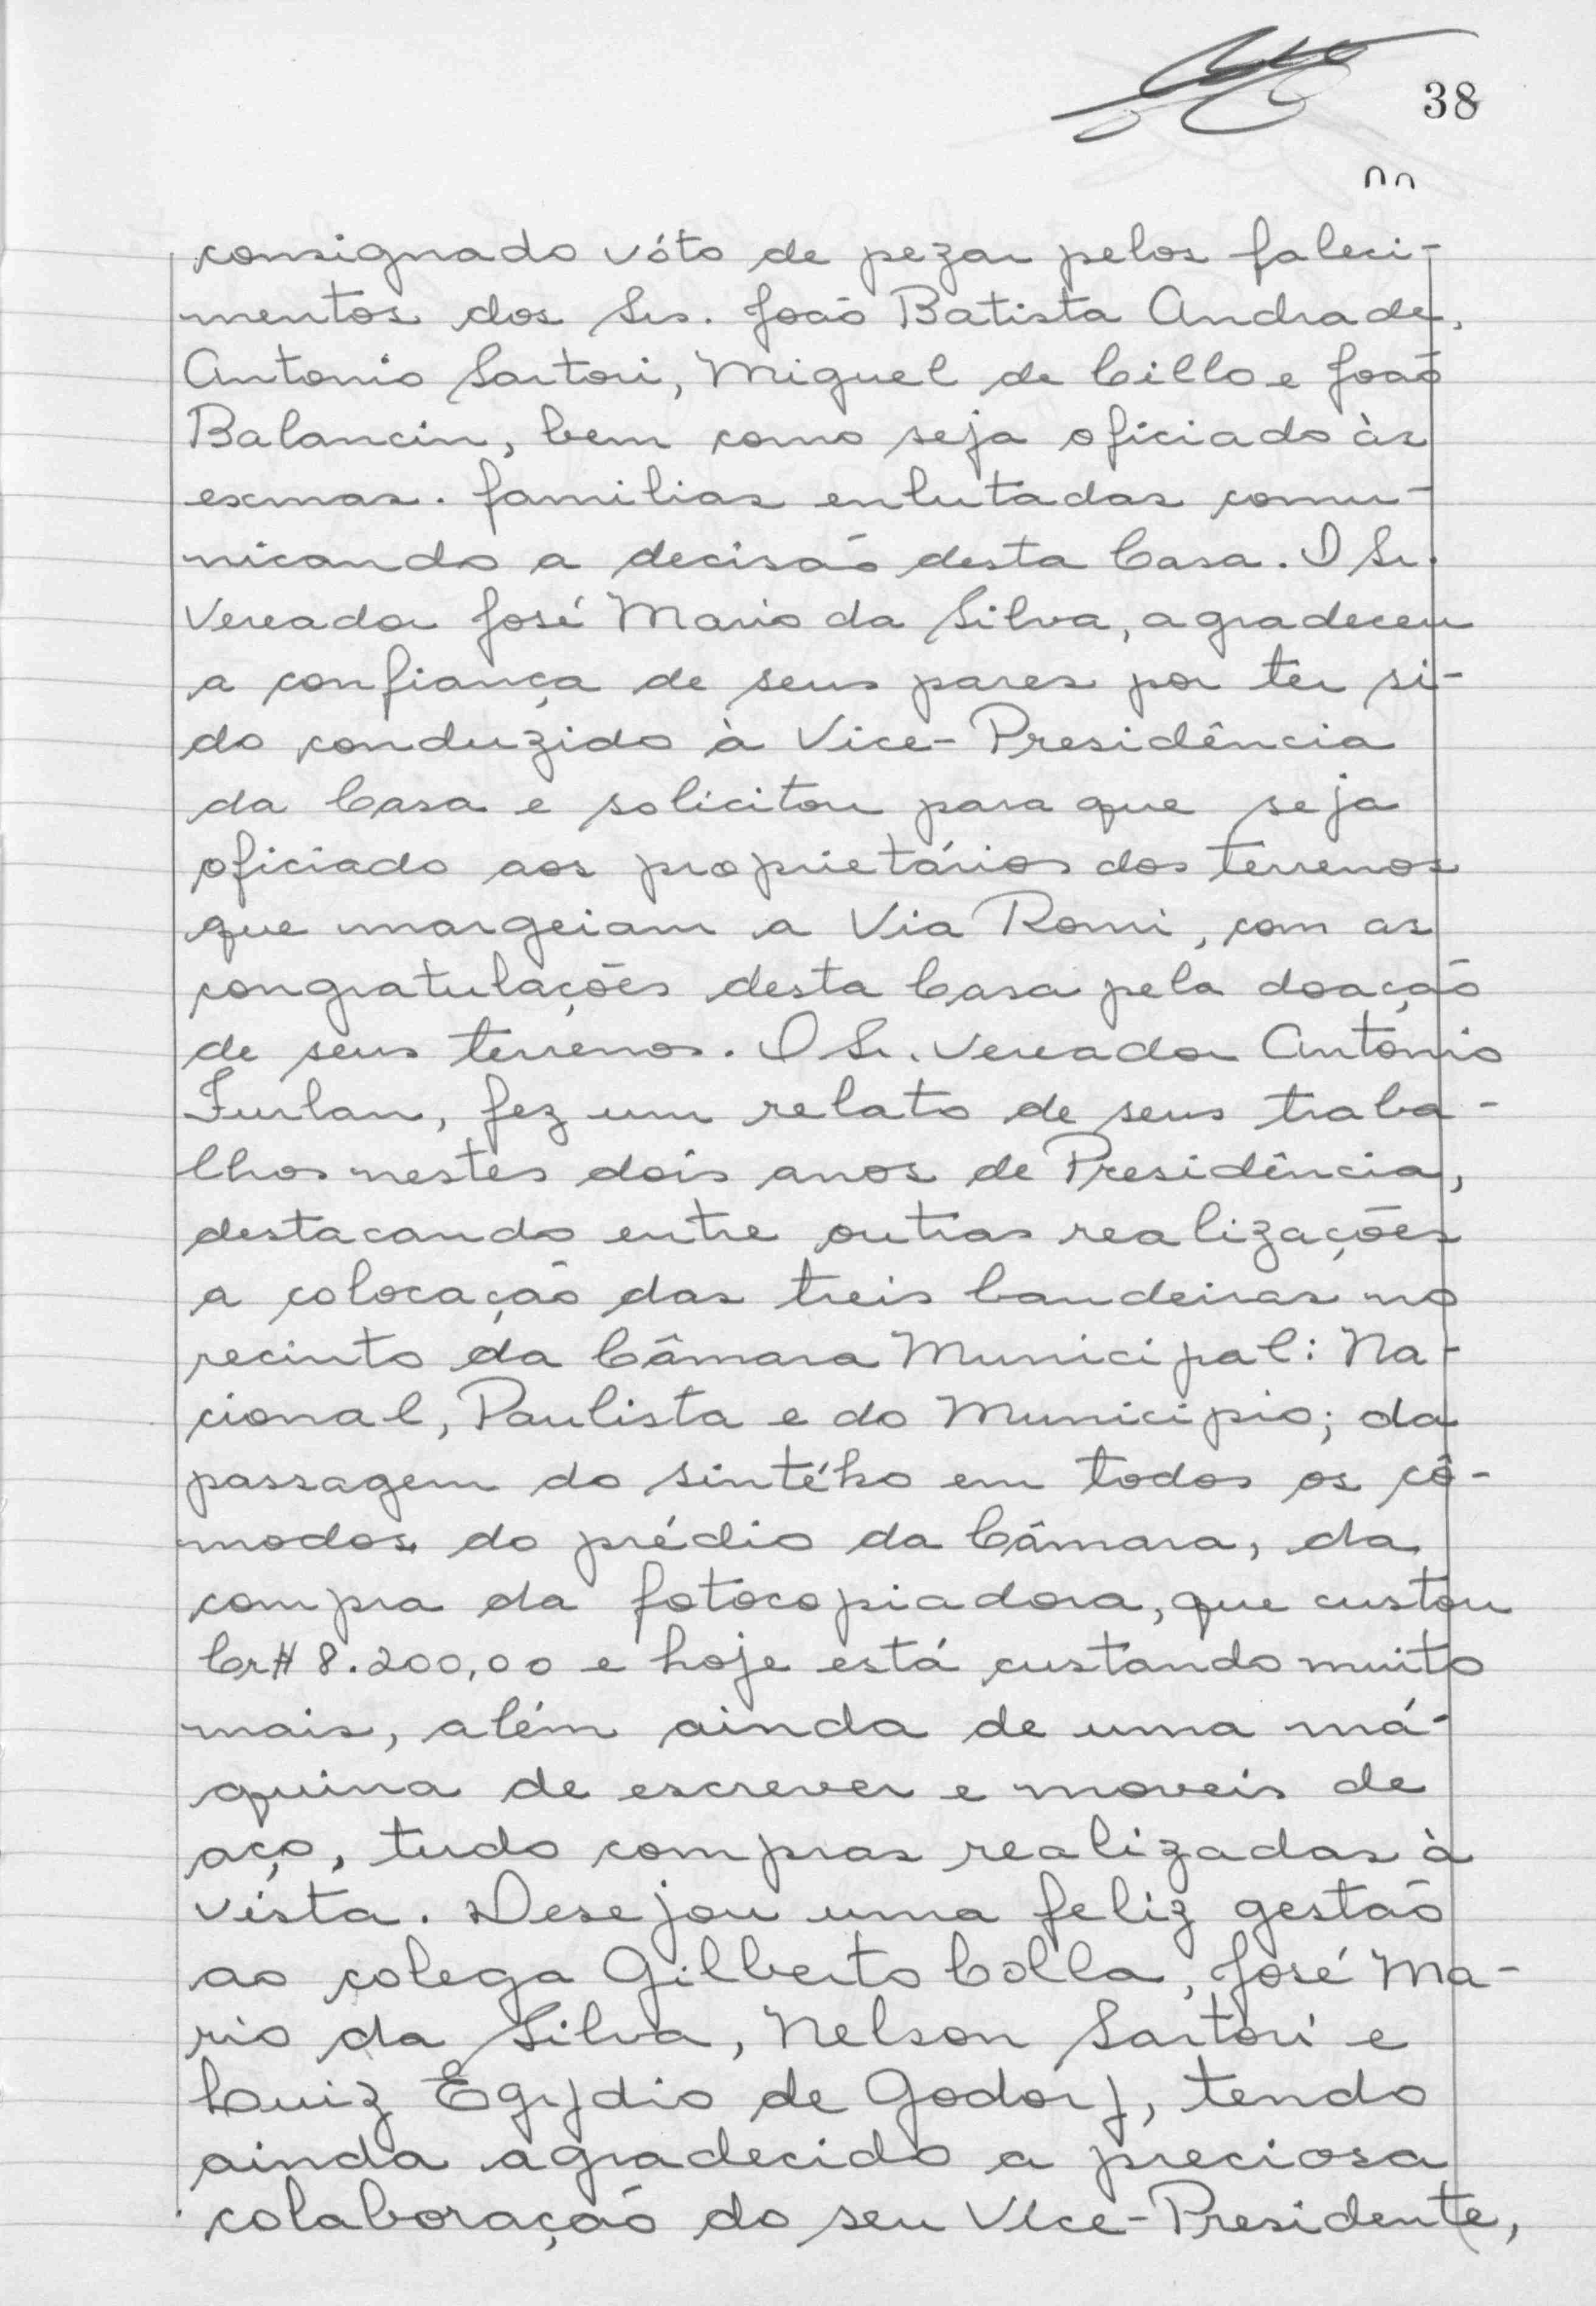 38
consignado vóto de pezar pelos faleci-
mentos dos Srs. João Batista Andrade,
Antonio Sartori, Miguel de Cillo e João
Balancin, bem como seja oficiado às
exmas. familias enlutadas comu-
nicando a decisão desta Casa. O Sr.
Vereador José Mario da Silva, agradeceu
a confiança de seus pares por ter si-
do conduzido à Vice-Presidência
da Casa e solicitou para que seja
oficiado aos proprietários dos terrenos
que margeiam a Via Romi, com as
congratulações desta Casa pela doação
de seus terrenos. O Sr. Vereador Antonio
Furlan, fez um relato de seus traba-
lhos nestes dois anos de Presidência,
destacando entre outras realizações
a colocação das treis bandeiras no
recinto da Câmara Municipal: Na-
cional, Paulista e do Municipio; da
passagem do sintéko em todos os cô-
modos do prédio da Câmara, da
compra da fotocopiadora, que custou
Cr$ 8.200,00 e hoje está custando muito
mais, além ainda de uma má-
quina de escrever e moveis de
aço, tudo compras realizadas à
vista. Desejou uma feliz gestão
ao colega Gilberto Colla, José Ma-
rio da Silva, Nelson Sartori e
Luiz Egydio de Godoy, tendo
ainda agradecido a preciosa
colaboração do seu Vice-Presidente,